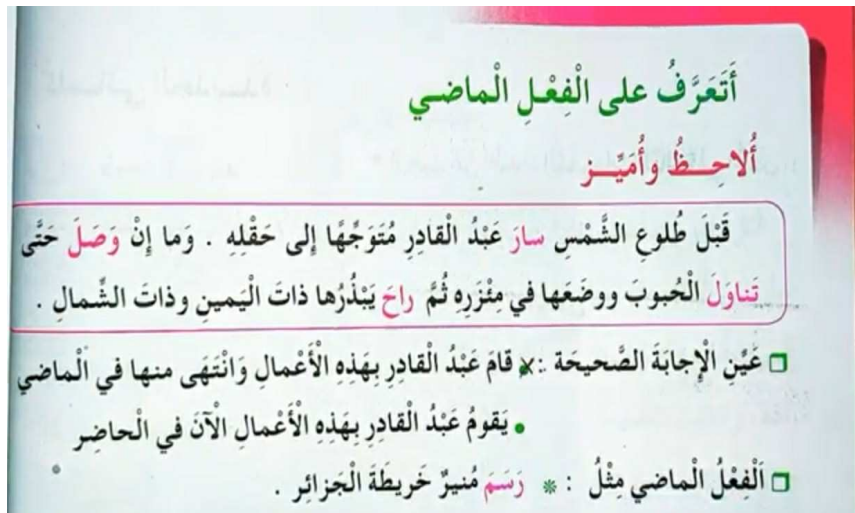 أَتَعَرَّفُ على الْفِعْلِ الْماضـي
أُلاحِـظُ وأُمَيِّـز
قَبْلَ طُلوعِ الشَّمْسِ سارَ عَبْدُ الْقادِرِ مُتَوَجِّهًا إلى حَقْلِهِ . وَما إنْ وَصَلَ حَتَّى
تَناوَلَ الْحُبوبَ ووضَعَها في مِئْزَرِهِ ثُمَّ راحَ يَبْذُرُها ذاتَ الْيَمينِ وذاتَ الشِّمالِ .
❒ عَيِّنِ الْإجابَةَ الصَّحيحَة : × قامَ عَبْدُ الْقادِرِ بِهَذِهِ الْأَعْمالِ وَانْتَهَى منها في الْماضي
• يَقومُ عَبْدُ الْقادِرِ بِهَذِهِ الْأَعْمالِ الْآنَ في الْحاضِر
❒ اَلْفِعْلُ الْماضي مِثْلُ : * رَسَمَ مُنيرٌ خَريطَةَ الْجَزائِر .